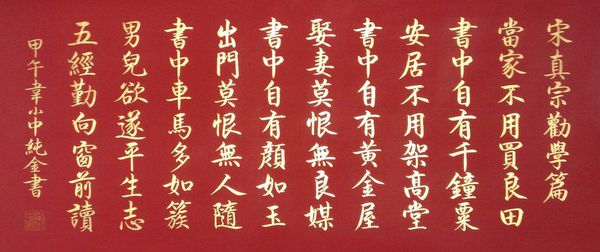 宋真宗勸學篇
當家不用買良田
書中自有千鐘粟
安居不用架高堂
書中自有黃金屋
娶妻莫恨無良媒
書中自有顏如玉
出門莫恨無人隨
書中車馬多如簇
男兒欲遂平生志
五經勤向窗前讀
甲午韋小中純金書